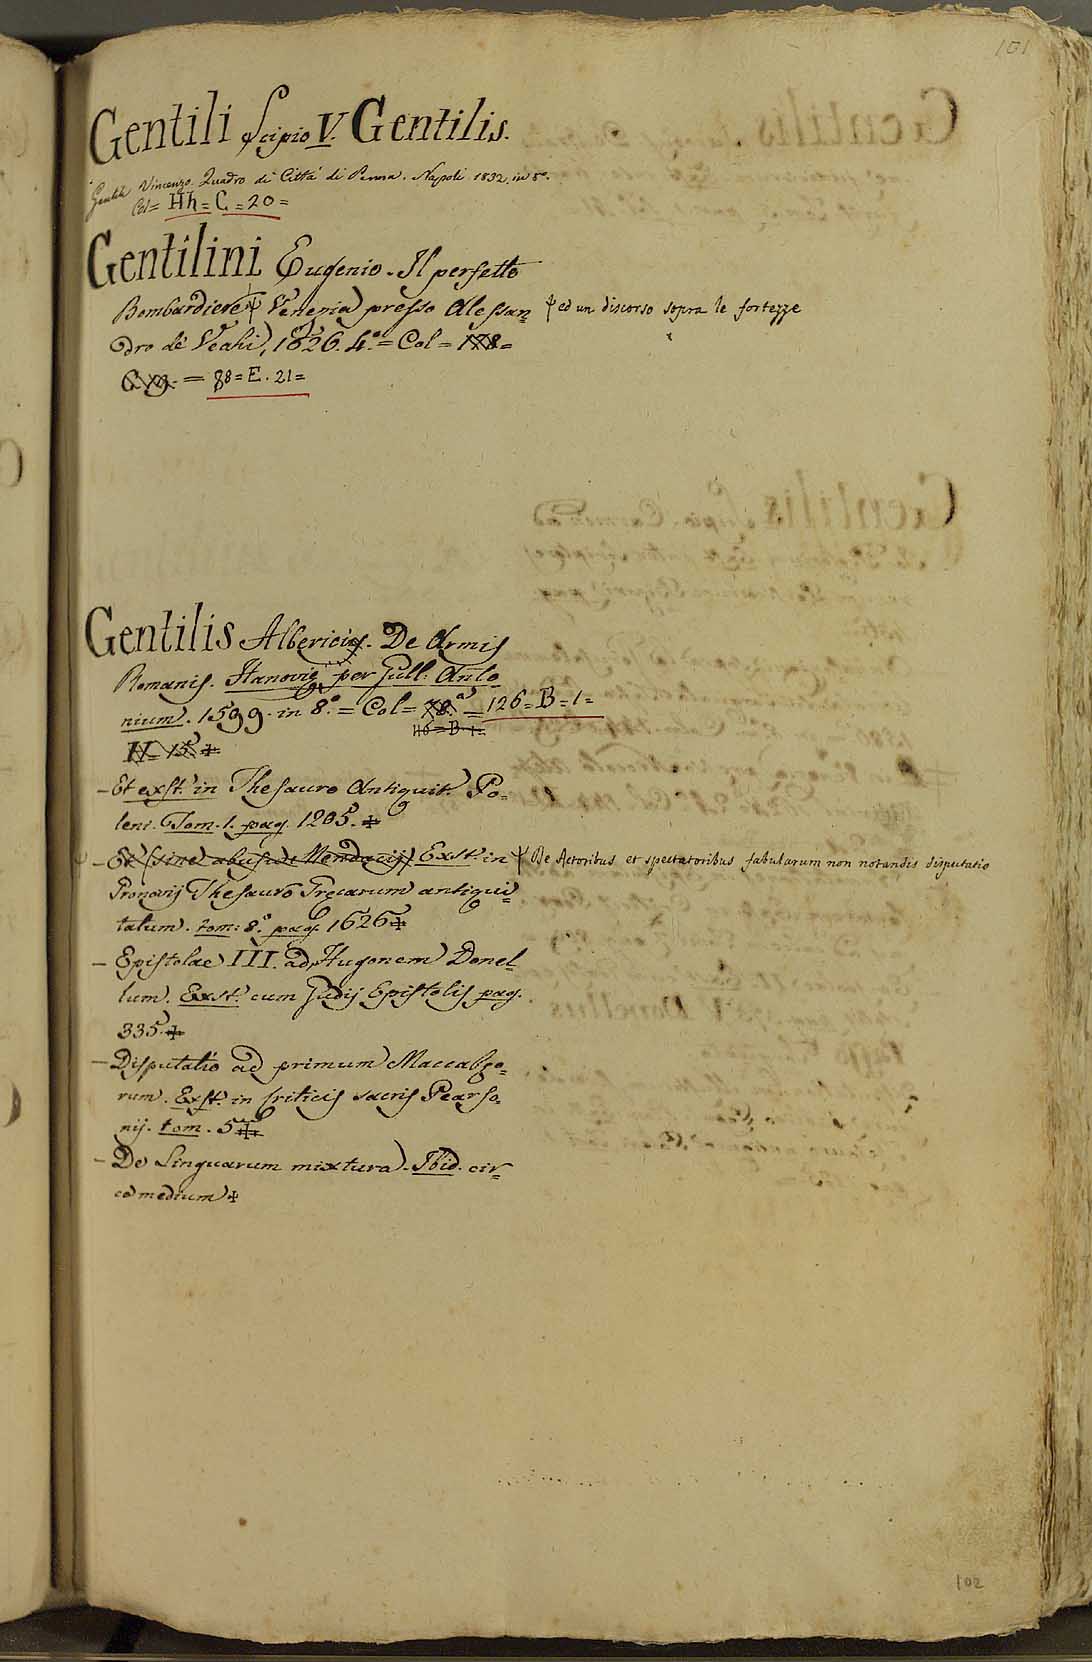 101
Gentili Scipio V. Gentilis.
Gentili Vincenzo. Quadro di Città di Penna. Napoli 1832. in 8º.
Col = Hh = C = 20 =
Gentilini Eugenio. Il perfetto
Bombardiere Venezia presso Alessan= ed un discorso sopra le fortezze
dro de Vechi, 1626. 4.º = Col = 128 =
= 88 = E. 21 =
Gentilis Albericus. De Armis
Romanis. Hanoviae per Gull: Anto
nium. 1599. in 8.º = Col = = 126 = B = 1 =
116 = B = 1 =
IV. 15
- Et exst. in Thesauro Antiquit. Po=
leni. Tom. 1. pag. 1205.
- Et (sine abusu Mendacij) Exst. in De Actoribus et spectatoribus fabularum non notandis disputatio
Gronovij Thesauro Grecarum antiqui=
tatum. tom: 8.º pag. 1626
- Epistolae III. ad Hugonem Donel=
lum. Exst. cum Gudij Epistolis pag.
335.
- Disputatio ad primum Maccabeo=
rum. Exst. in Criticis sacris Pearso=
nij. tom. 5
- De Linguarum mixtura. Ibid. cir=
ca medium
102